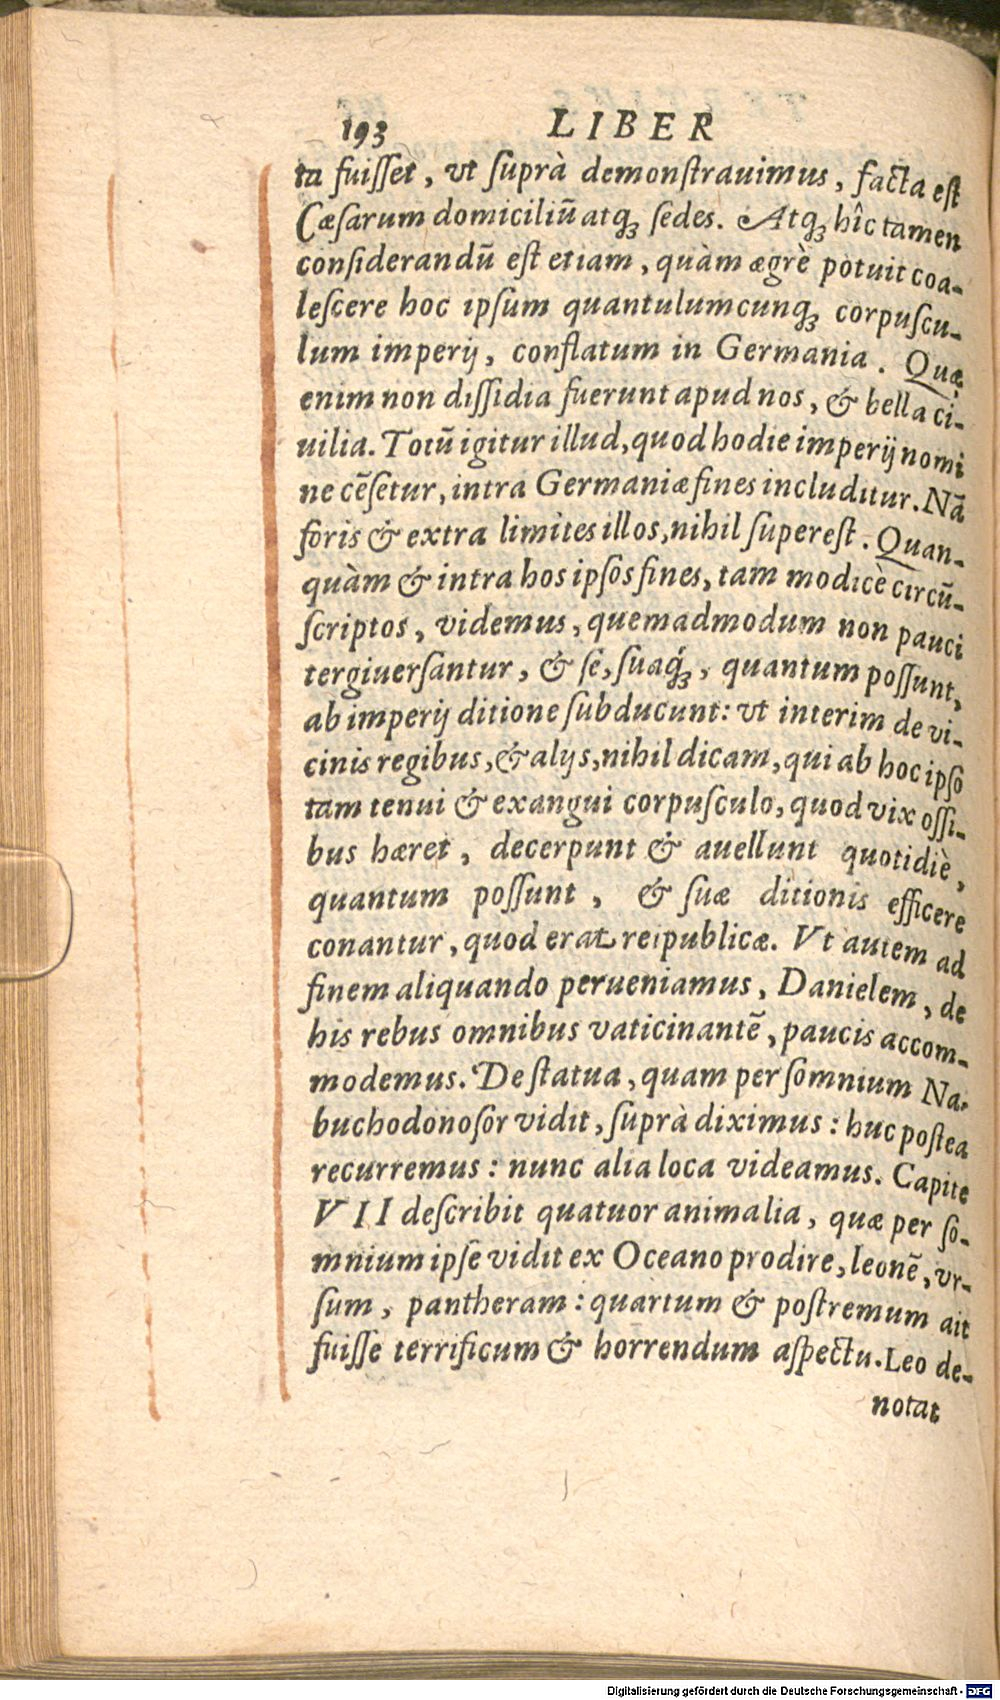 193 LIBER
ta fuisset, vt suprà demonstrauimus, facta est
Cæsarum domiciliũ atqꝫ sedes. Atqꝫ hîc tamen
considerandũ est etiam, quàm ægrè potuit coa-
lescere hoc ipsum quantulumcunqꝫ corpuscu-
lum imperij, conflatum in Germania. Quæ
enim non dissidia fuerunt apud nos, & bella ci-
uilia. Totũ igitur illud, quod hodie imperij nomi
ne cẽsetur, intra Germaniæ fines includitur. Nã
foris & extra limites illos, nihil superest. Quan-
quàm & intra hos ipsos fines, tam modicè circũ-
scriptos, videmus, quemadmodum non pauci
tergiuersantur, & se, suaq́ꝫ, quantum possunt,
ab imperij ditione subducunt: vt interim de vi-
cinis regibus, & alijs, nihil dicam, qui ab hoc ipso
tam tenui & exangui corpusculo, quod vix ossi-
bus hæret, decerpunt & auellunt quotidiè,
quantum possunt, & suæ ditionis efficere
conantur, quod erat reipublicæ. Vt autem ad
finem aliquando perueniamus, Danielem, de
his rebus omnibus vaticinantẽ, paucis accom-
modemus. De statua, quam per somnium Na-
buchodonosor vidit, suprà diximus: huc postea
recurremus: nunc alia loca videamus. Capite
VII describit quatuor animalia, quæ per so-
mnium ipse vidit ex Oceano prodire, leonẽ, vr-
sum, pantheram: quartum & postremum ait
fuisse terrificum & horrendum aspectu. Leo de-
notat
Digitalisierung gefördert durch die Deutsche Forschungsgemeinschaft - DFG